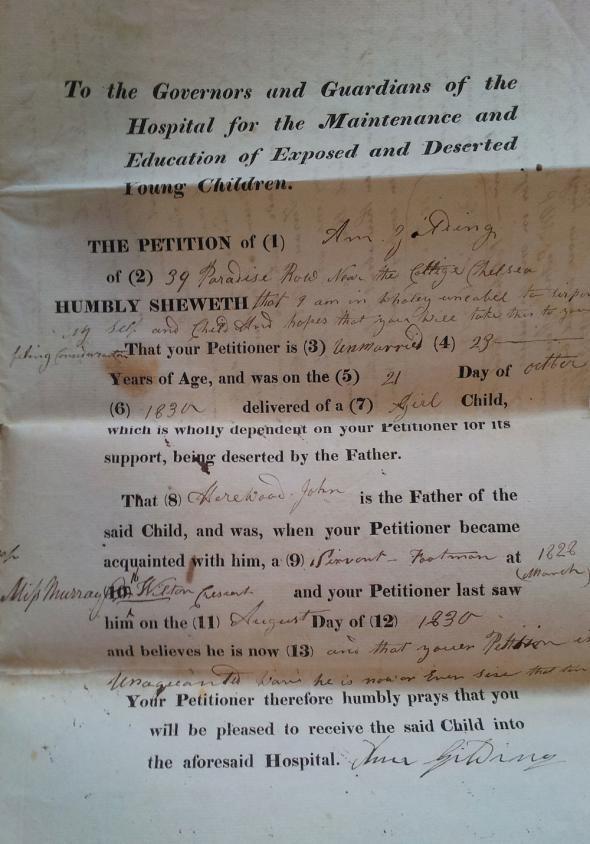 To the Governors and Guardians of the
Hospital for the Maintenance and
Education of Exposed and Deserted
Young Children.
THE PETITION of (1) Ann Gilding
of (2) 39 Paradise Row Near the Chelsea
HUMBLY SHEWETH that I am in wholey uneabel to
self and Child And hopes that you will take this to your
feling Consideration That your Petitioner is (3) Unmarried (4) 23
Years of Age, and was on the (5) 21 Day of
(6) 1830 delivered of a (7) Girl Child,
which is wholly dependent on your Petitioner for its
support, being deserted by the Father.
That (8) Herewood John is the Father of the
said Child, and was, when your Petitioner became
acquainted with him, a (9) Servent - Footman at 1828
(March)
Miss Murray 16 Wilton Crescent and your Petitioner last saw
him on the (11) August Day of (12) 1830
and believes he is now (13) and that youer is
he is now or Ever sine that
Your Petitioner therefore humbly prays that you
will be pleased to receive the said Child into
the aforesaid Hospital. Ann Gilding